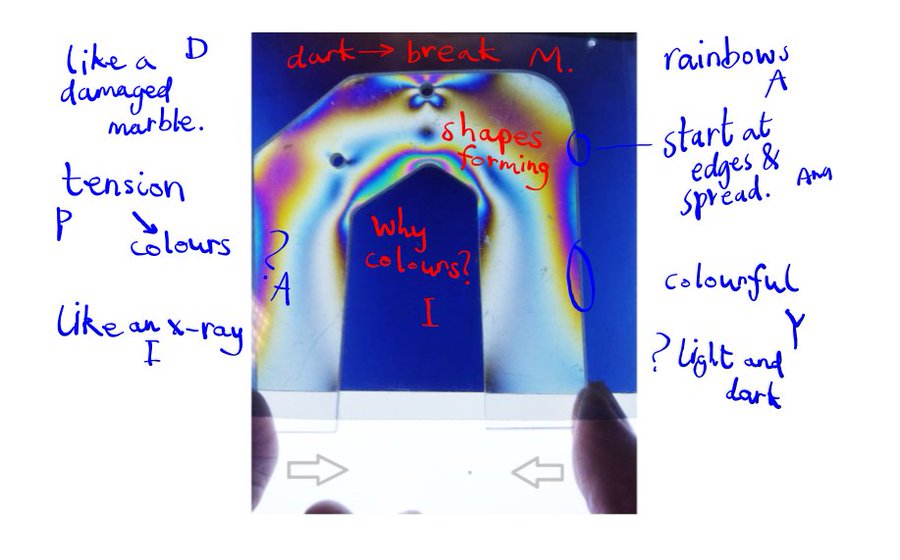 like a D
damaged
marble.
tension
P
colours
Like an x-ray
I
dark → break M.
shapes
forming
Why
colours?
I
?
A
rainbows
A
start at
edges &
spread. Ana
colourful
Y
? light and
dark